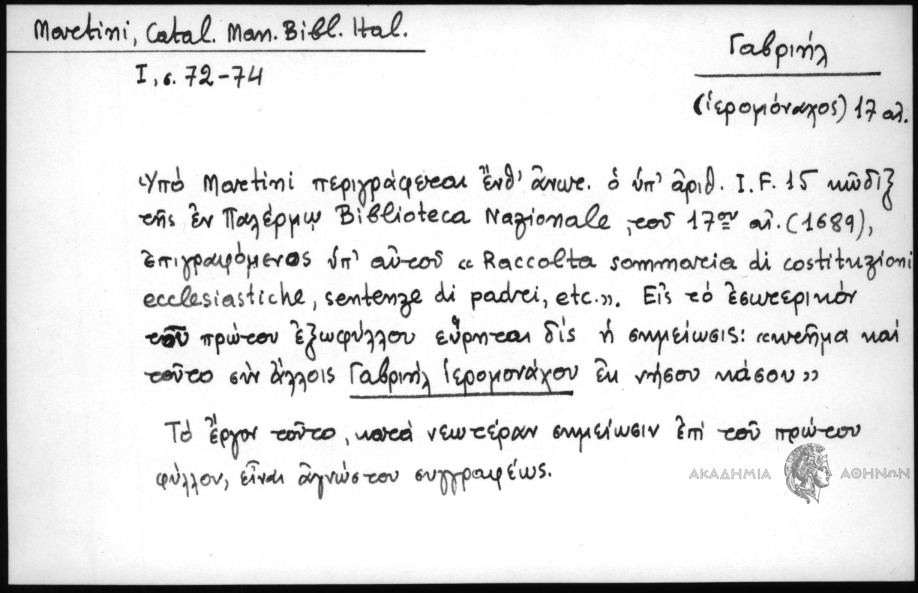 Martini, Catal. Man. Bibl. Ital.
I, σ. 72-74
Γαβριήλ
(ἱερομόναχος) 17 αἰ.
Ὑπό Martini περιγράφεται ἔνθ' ἄνωτ. ὁ ὑπ' ἀριθ. I.F. 15 κῶδιξ
τῆς ἐν Παλέρμῳ Biblioteca Nazionale, τοῦ 17ου αἰ. (1689),
ἐπιγραφόμενος ὑπ' αὐτοῦ « Raccolta sommaria di costituzioni
ecclesiastiche, sentenze di padri, etc.». Εἰς τό ἐσωτερικόν
τοῦ πρώτου ἐξωφύλλου εὕρηται δίς ἡ σημείωσις: «κτῆμα καί
τοῦτο σύν ἄλλοις Γαβριήλ ἱερομονάχου ἐκ νήσου κάσου»
Τό ἔργον τοῦτο, κατά νεωτέραν σημείωσιν ἐπί τοῦ πρώτου
φύλλου, εἶναι ἀγνώστου συγγραφέως.
ΑΚΑΔΗΜΙΑ ΑΘΗΝΩΝ